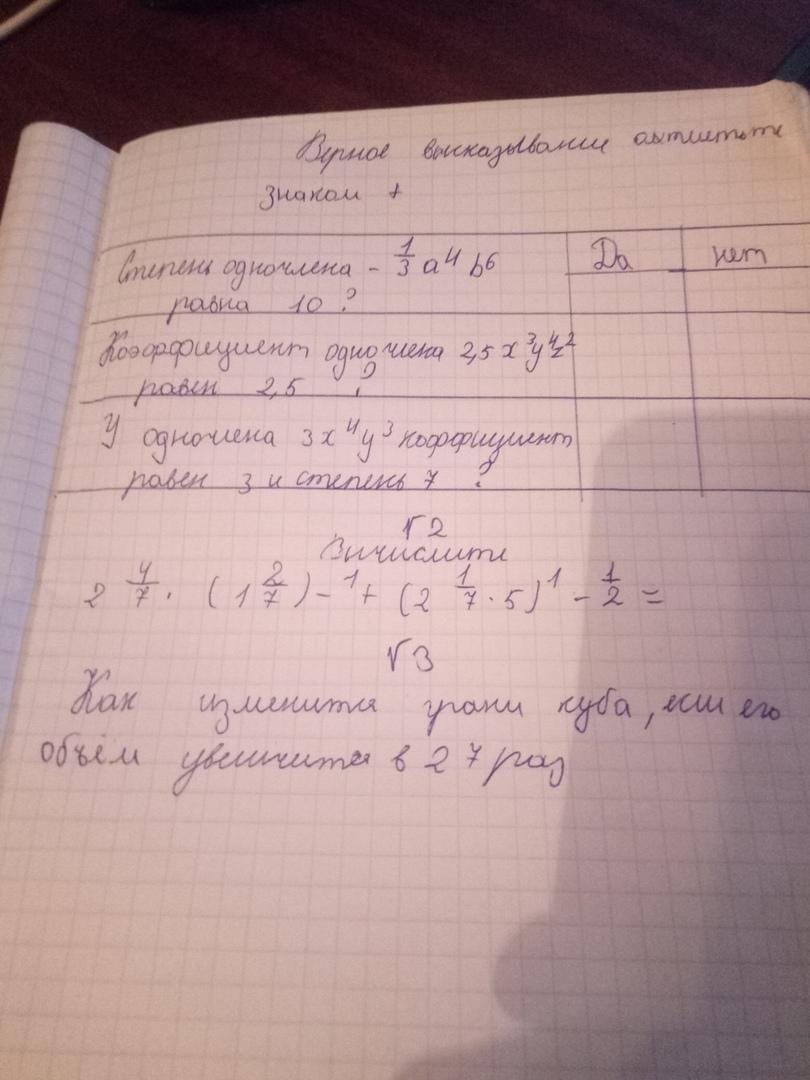 Верное высказывание отметьте
знаком +
Степень одночлена - 1/3 a⁴ b⁶ Да нет
равна 10 ?
Коэффициент одночлена 2,5 x³y⁴z²
равен 2,5 ?
У одночлена 3x⁴y³ коффициент
равен 3 и степень 7 ?
√2
Вычислите
2 4/7 · (1 2/7)⁻¹ + (2 1/7 · 5)¹ - 1/2 =
√3
Как изменится грани куба, если его
объём увеличится в 27 раз